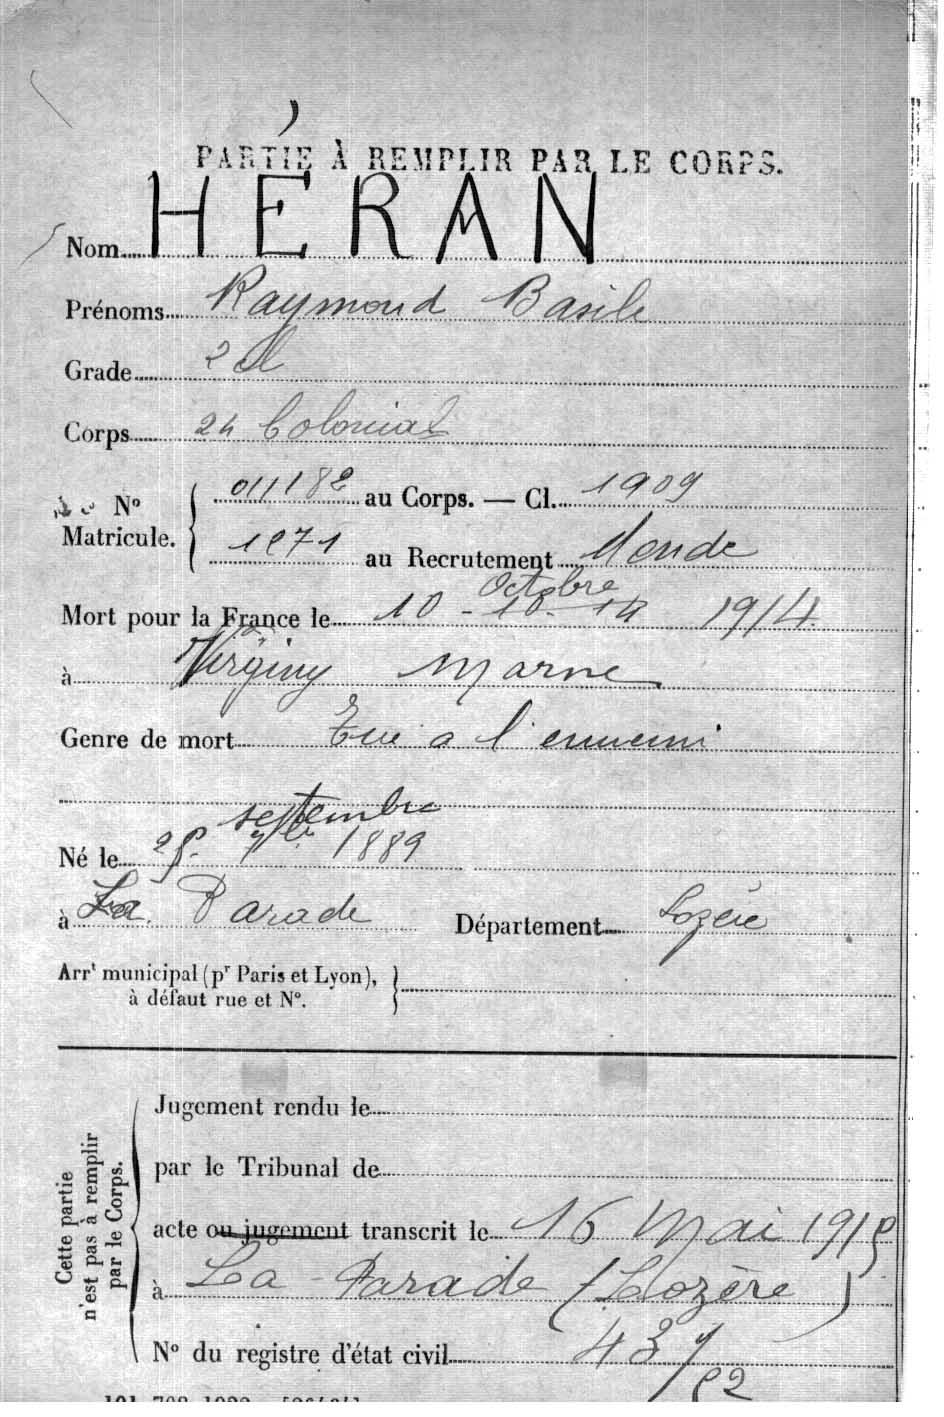 PARTIE À REMPLIR PAR LE CORPS.
Nom HÉRAN
Prénoms Raymond Basile
Grade 2 cl
Corps 24 Colonial
Nº Matricule. { 011182 au Corps. — Cl. 1909
1271 au Recrutement Mende
Octobre
Mort pour la France le 10 - 10 - 14 1914
à Virginy Marne
Genre de mort Tué a l'ennemi
septembre
Né le 25 7bre 1889
à La Parade Département Lozère
Arrᵗ municipal (pʳ Paris et Lyon), }
à défaut rue et Nº.
Cette partie n'est pas à remplir par le Corps.
Jugement rendu le
par le Tribunal de
acte ou jugement transcrit le 16 Mai 1915
à La-Parade (Lozère)
Nº du registre d'état civil 437/